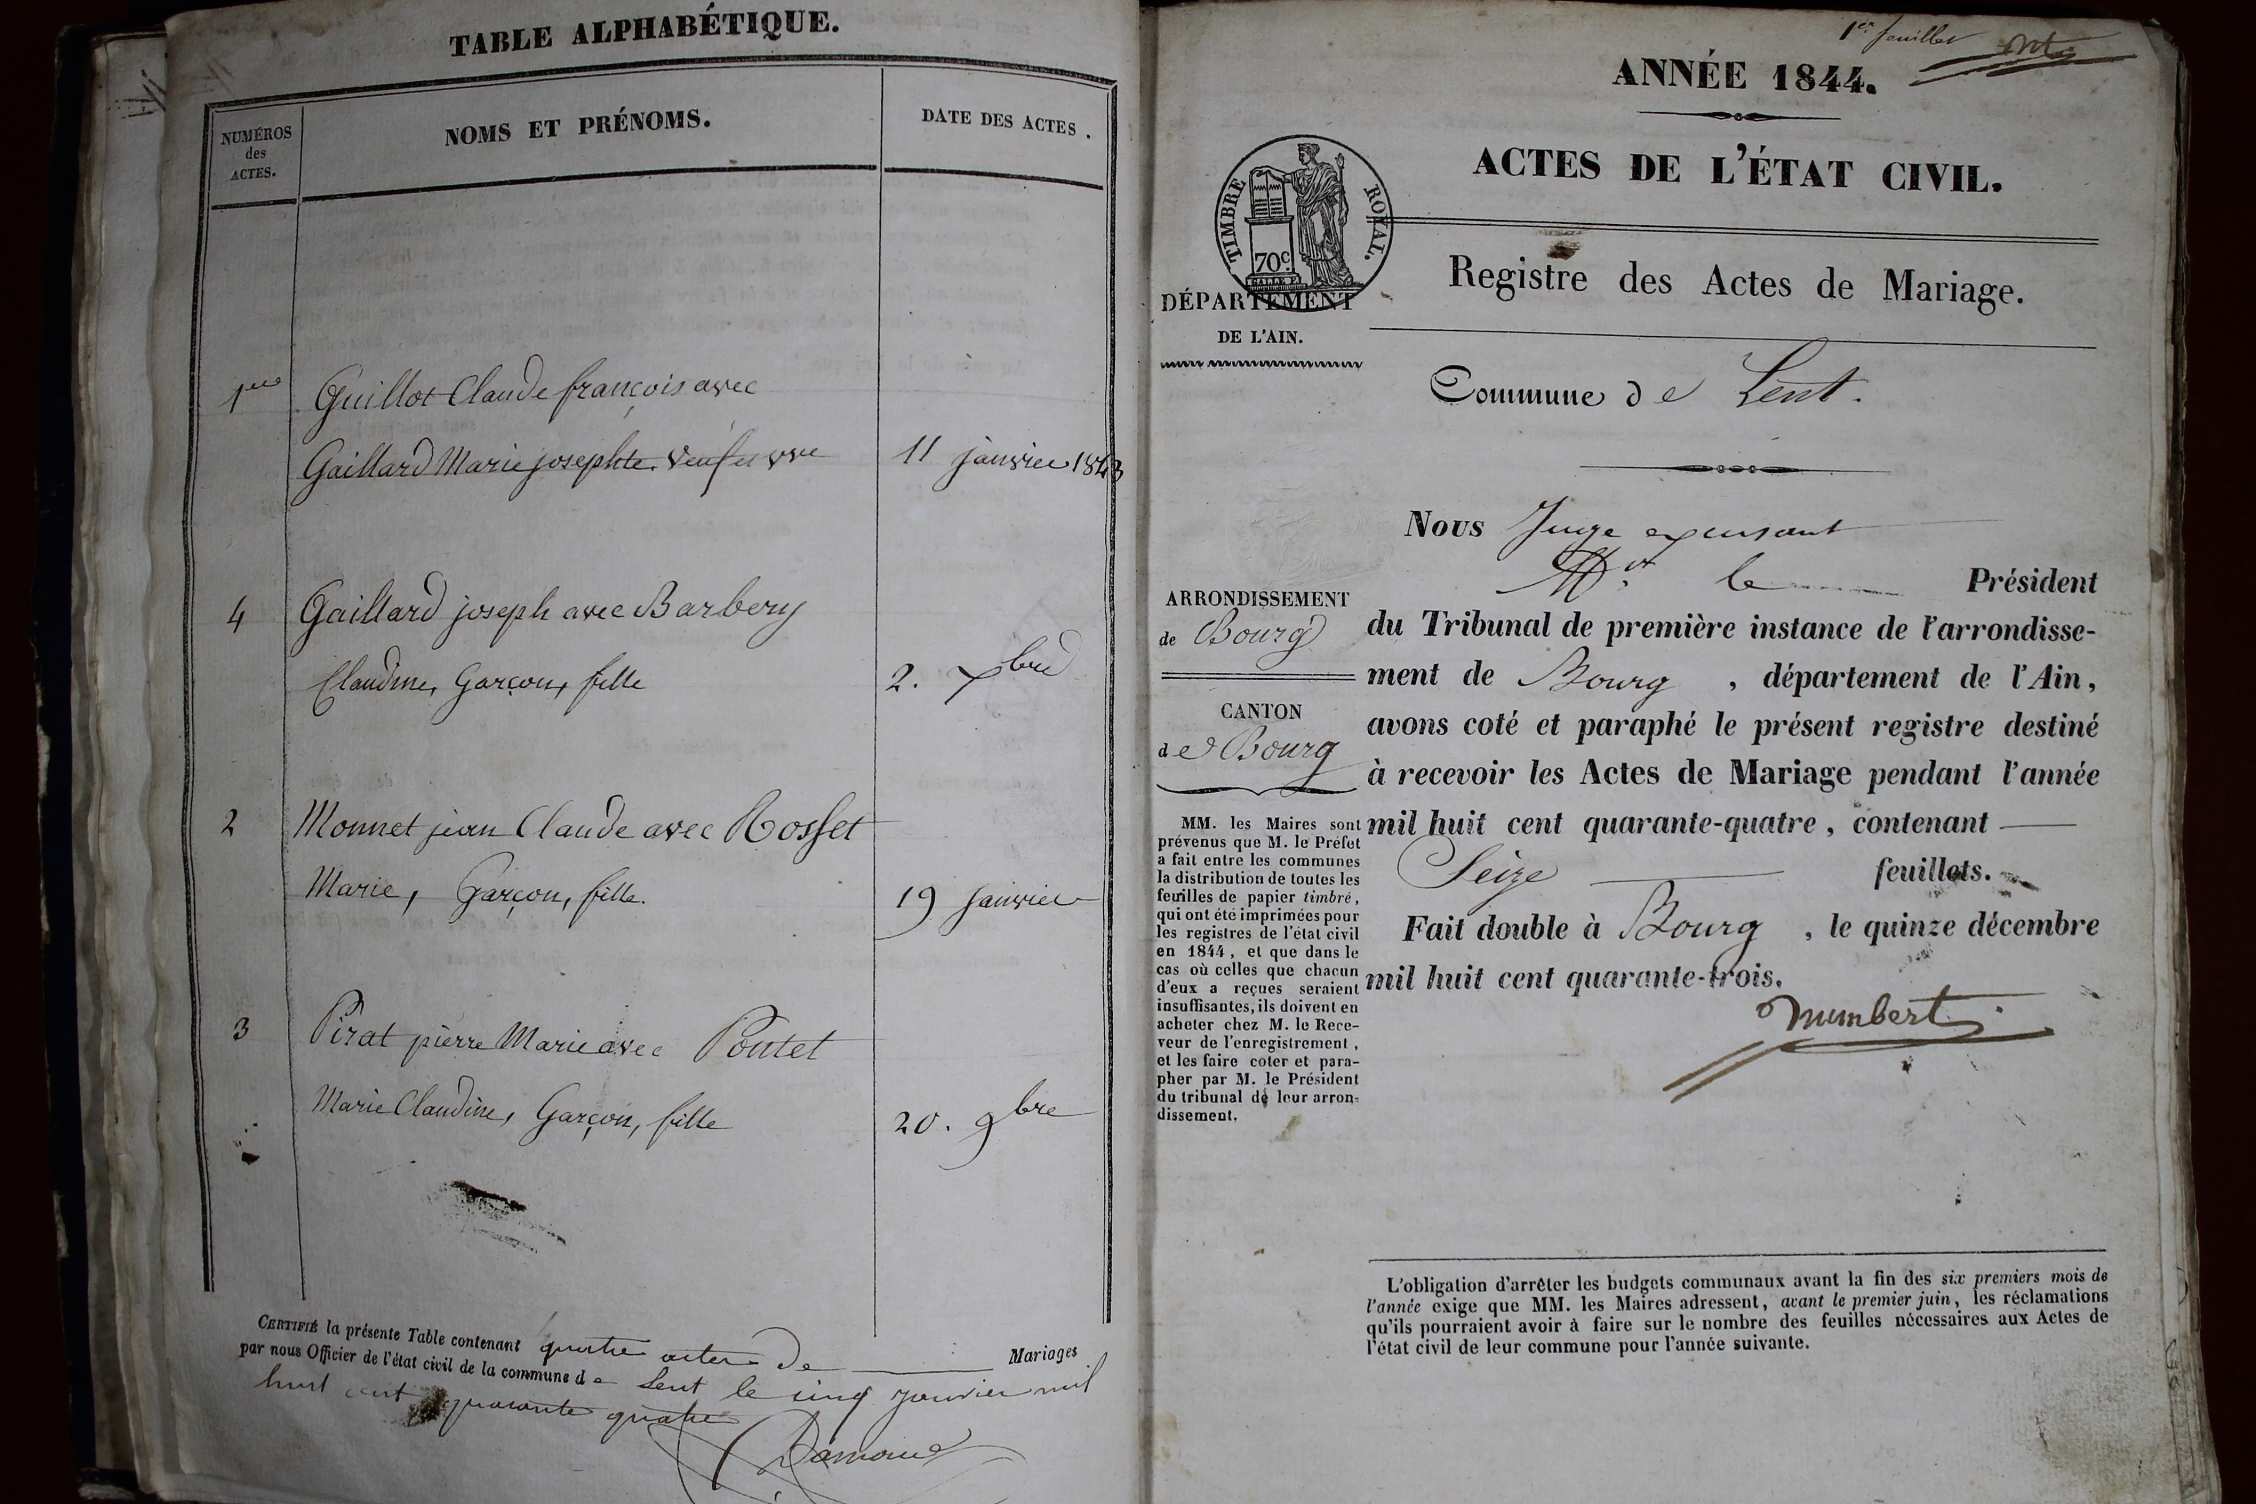 TABLE ALPHABÉTIQUE.
NUMÉROS
des
ACTES.
NOMS ET PRÉNOMS.
DATE DES ACTES.
1ere Guillot Claude françois avec
Gaillard Marie josephte. veuf et vve 11 janvier 1843
4 Gaillard joseph avec Barbery
Claudine, Garçon, fille 2. Xbre
2 Monnet jean Claude avec Rosset
Marie, Garçon, fille. 19 janvier
3 Pirat pierre Marie avec Poutet
Marie Claudine, Garçon, fille 20. 9bre
CERTIFIÉ la présente Table contenant quatre actes de Mariages
par nous Officier de l'état civil de la commune de Lent le cinq janvier mil
huit cent quarante quatre
1er feuillet
ANNÉE 1844.
ACTES DE L'ÉTAT CIVIL.
TIMBRE ROYAL.
70c.
Registre des Actes de Mariage.
DÉPARTEMENT
DE L'AIN.
Commune de Lent.
Nous Juge
Mr le Président
du Tribunal de première instance de l'arrondisse-
ment de Bourg, département de l'Ain,
avons coté et paraphé le présent registre destiné
à recevoir les Actes de Mariage pendant l'année
mil huit cent quarante-quatre, contenant
Seize feuillets.
Fait double à Bourg, le quinze décembre
mil huit cent quarante-trois.
ARRONDISSEMENT
de Bourg
CANTON
de Bourg
MM. les Maires sont
prévenus que M. le Préfet
a fait entre les communes
la distribution de toutes les
feuilles de papier timbré,
qui ont été imprimées pour
les registres de l'état civil
en 1844, et que dans le
cas où celles que chacun
d'eux a reçues seraient
insuffisantes, ils doivent en
acheter chez M. le Rece-
veur de l'enregistrement,
et les faire coter et para-
pher par M. le Président
du tribunal de leur arron-
dissement.
L'obligation d'arrêter les budgets communaux avant la fin des six premiers mois de
l'année exige que MM. les Maires adressent, avant le premier juin, les réclamations
qu'ils pourraient avoir à faire sur le nombre des feuilles nécessaires aux Actes de
l'état civil de leur commune pour l'année suivante.